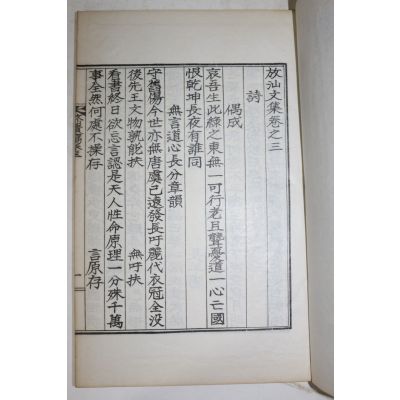 放汕文集卷之三
詩
偶成
哀吾生此綠之東無一可行老且聾憂道一心亡國
恨乾坤長夜有誰同
無言道心長分章韻
守舊陽今世亦無唐虞已遠發長吁麗代衣冠全没
後先王文物孰能扶 無吁扶
看書終日欲忘言認是天人性命原理一分殊千萬
事全然何處不操存 言原存
一